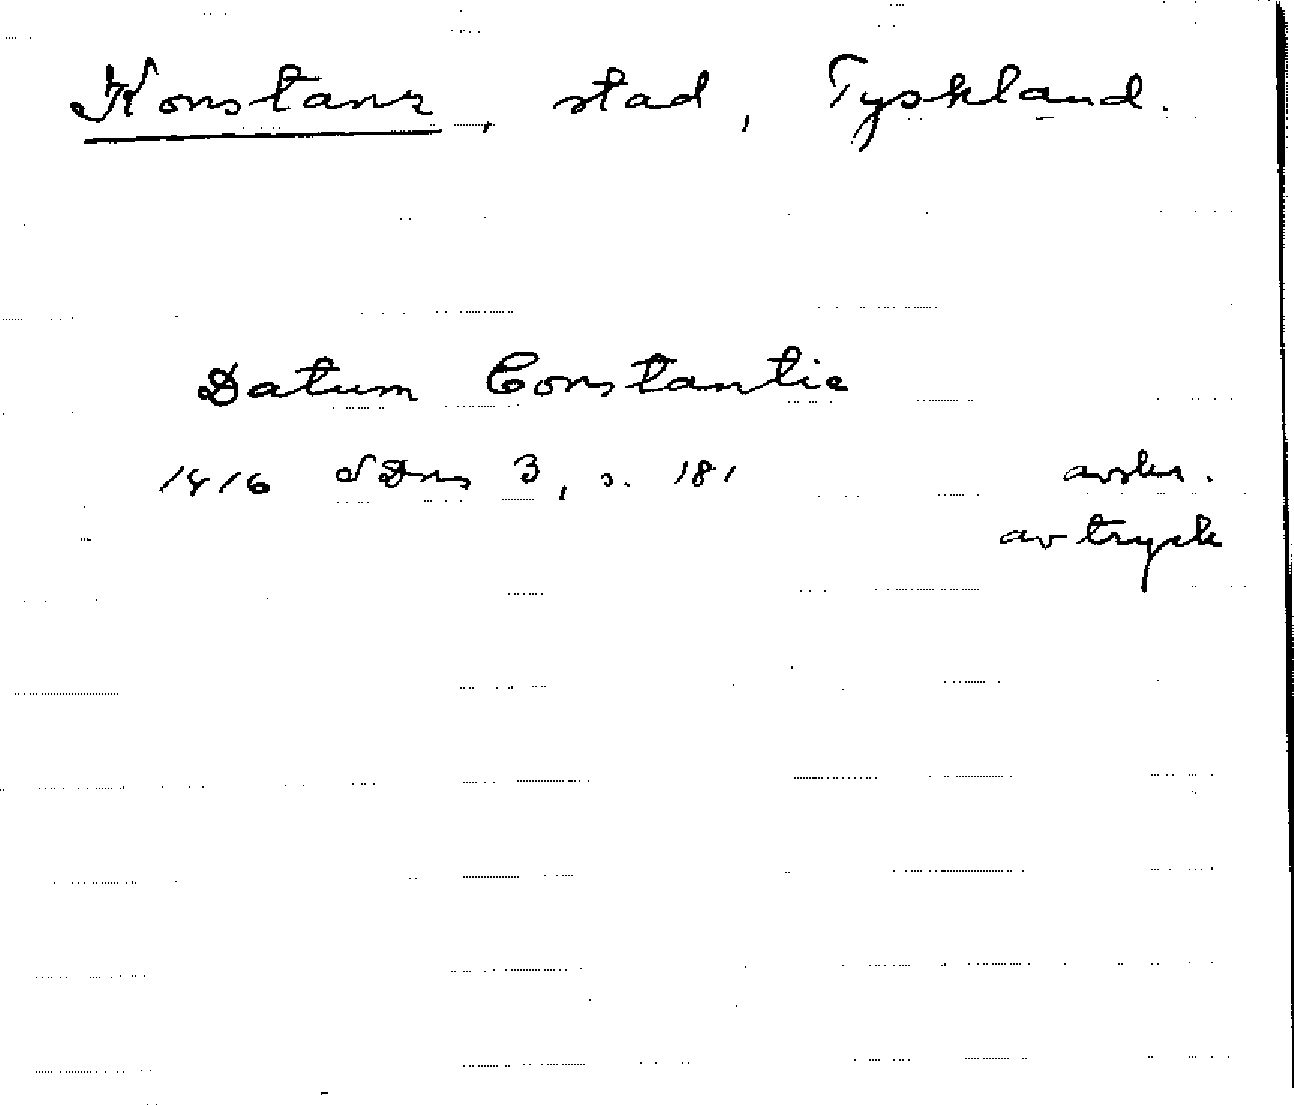 Konstanz, stad, Tyskland.
Datum Constantie
1416 SDns 3, s. 181 avskr.
av tryck